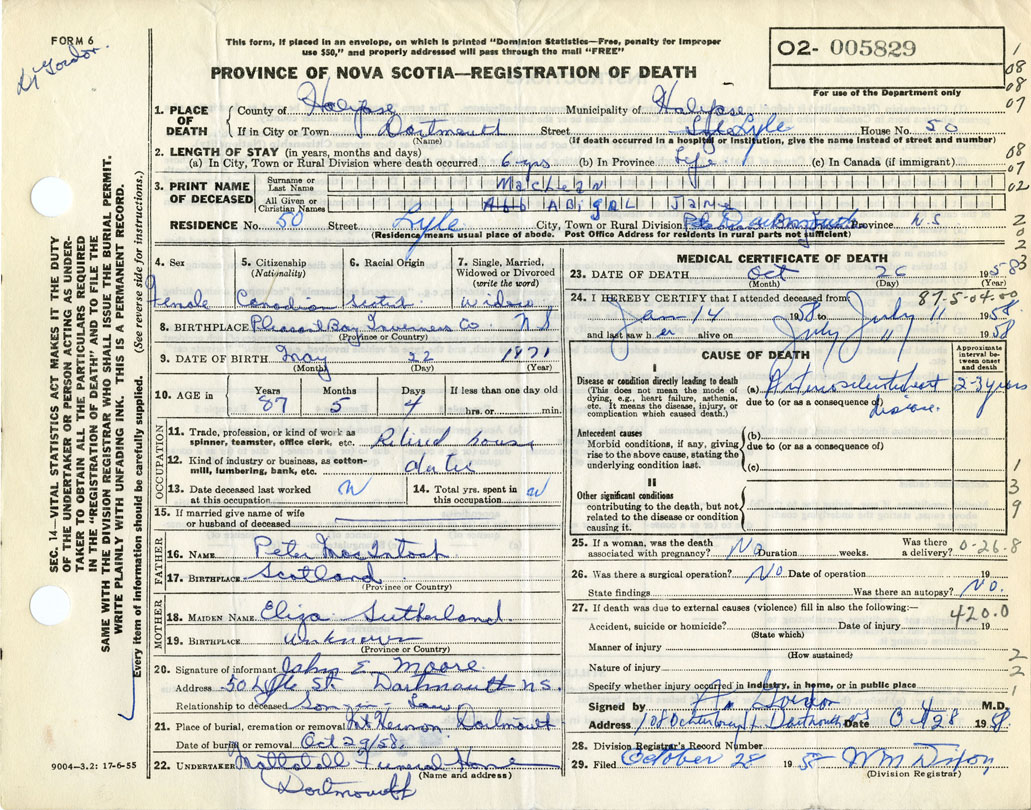 FORM 6
Dr Gordon
This form, if placed in an envelope, on which is printed "Dominion Statistics—Free, penalty for improper
use $50," and properly addressed will pass through the mail "FREE"
PROVINCE OF NOVA SCOTIA—REGISTRATION OF DEATH
O2- 005829
For use of the Department only
1. PLACE OF DEATH
County of Halifax Municipality of Halifax
If in City or Town Dartmouth Street Lyle House No. 50
(Name) (If death occurred in a hospital or institution, give the name instead of street and number)
2. LENGTH OF STAY (in years, months and days)
(a) In City, Town or Rural Division where death occurred 6 yrs (b) In Province Life (c) In Canada (if immigrant)
3. PRINT NAME OF DECEASED
Surname or Last Name MacLean
All Given or Christian Names Abigal Jane
RESIDENCE No. 50 Street Lyle City, Town or Rural Division Dartmouth Province N.S
(Residence means usual place of abode. Post Office Address for residents in rural parts not sufficient)
4. Sex Female
5. Citizenship (Nationality) Canadian
6. Racial Origin
7. Single, Married, Widowed or Divorced (write the word) Widow
8. BIRTHPLACE Pleasant Bay Inverness Co N S
(Province or Country)
9. DATE OF BIRTH May 22 1871
(Month) (Day) (Year)
10. AGE in Years 87 Months 5 Days 4 If less than one day old hrs. or min.
OCCUPATION
11. Trade, profession, or kind of work as spinner, teamster, office clerk, etc. Retired house
12. Kind of industry or business, as cotton-mill, lumbering, bank, etc. duties
13. Date deceased last worked at this occupation
14. Total yrs. spent in this occupation
15. If married give name of wife or husband of deceased
FATHER
16. NAME Peter MacIntosh
17. BIRTHPLACE Scotland
(Province or Country)
MOTHER
18. MAIDEN NAME Eliza Sutherland
19. BIRTHPLACE Unknown
(Province or Country)
20. Signature of informant John E Moore
Address 50 Lyle St Dartmouth N.S.
Relationship to deceased Son-in-Law
21. Place of burial, cremation or removal Mt Hermon Dartmouth
Date of burial or removal Oct 29/58.
22. UNDERTAKER Funeral Home
(Name and address)
Dartmouth
MEDICAL CERTIFICATE OF DEATH
23. DATE OF DEATH Oct 26 1958
(Month) (Day) (Year)
24. I HEREBY CERTIFY that I attended deceased from: 87-5-04.00
Jan 14 1958 to July 11 1958
and last saw her alive on July 11 1958
CAUSE OF DEATH
Approximate interval between onset and death
I
Disease or condition directly leading to death
(This does not mean the mode of dying, e.g., heart failure, asthenia, etc. It means the disease, injury, or complication which caused death.)
(a) Arteriosclerotic heart 2-3 years
due to (or as a consequence of) disease.
Antecedent causes
Morbid conditions, if any, giving rise to the above cause, stating the underlying condition last.
(b)
due to (or as a consequence of)
(c)
II
Other significant conditions
contributing to the death, but not related to the disease or condition causing it.
25. If a woman, was the death associated with pregnancy? No Duration weeks. Was there a delivery? 0-26.8
26. Was there a surgical operation? No Date of operation 19
State findings Was there an autopsy? No.
27. If death was due to external causes (violence) fill in also the following:— 420.0
Accident, suicide or homicide? Date of injury 19
(State which)
Manner of injury
(How sustained)
Nature of injury
Specify whether injury occurred in industry, in home, or in public place
Signed by Gordon M.D.
Address Dartmouth Date Oct 28 1958
28. Division Registrar's Record Number
29. Filed October 28 1958 Wm Dixon
(Division Registrar)
SEC. 14—VITAL STATISTICS ACT MAKES IT THE DUTY
OF THE UNDERTAKER OR PERSON ACTING AS UNDER-
TAKER TO OBTAIN ALL THE PARTICULARS REQUIRED
IN THE "REGISTRATION OF DEATH" AND TO FILE THE
SAME WITH THE DIVISION REGISTRAR WHO SHALL ISSUE THE BURIAL PERMIT.
WRITE PLAINLY WITH UNFADING INK. THIS IS A PERMANENT RECORD.
Every item of information should be carefully supplied. (See reverse side for instructions.)
9004-3.2: 17-6-55
1
08
08
07
08
07
02
2
0
2
3
1
3
9
2
2
1